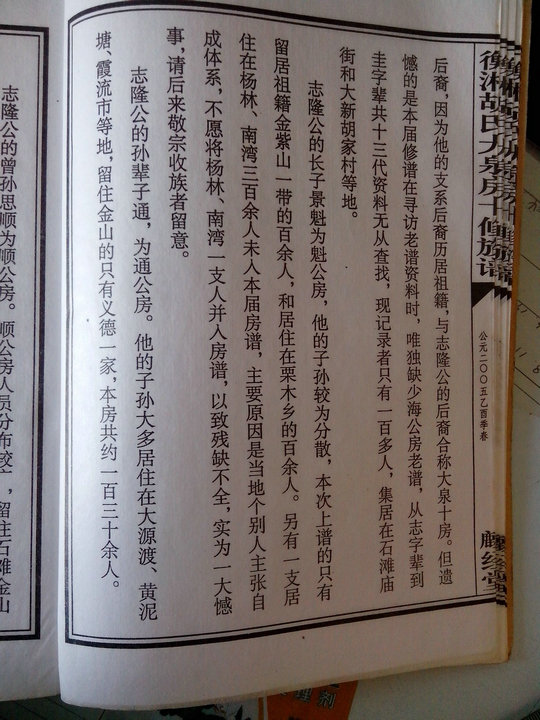 衡湘胡氏大泉房十修族谱
公元二〇〇五乙酉季春
后裔，因为他的支系后裔历居祖籍，与志隆公的后裔合称大泉十房。但遗
憾的是本届修谱在寻访老谱资料时，唯独缺少海公房老谱，从志字辈到
圭字辈共十三代资料无从查找，现记录者只有一百多人，集居在石滩庙
街和大新胡家村等地。
志隆公的长子景魁为魁公房，他的子孙较为分散，本次上谱的只有
留居祖籍金紫山一带的百余人，和居住在栗木乡的百余人。另有一支居
住在杨林、南湾三百余人未入本届房谱，主要原因是当地个别人主张自
成体系，不愿将杨林、南湾一支人并入房谱，以致残缺不全，实为一大憾
事，请后来敬宗收族者留意。
志隆公的孙辈子通，为通公房。他的子孙大多居住在大源渡、黄泥
塘、霞流市等地，留住金山的只有义德一家，本房共约一百三十余人。
志隆公的曾孙思顺为顺公房。顺公房人员分布较广，留住石滩金山